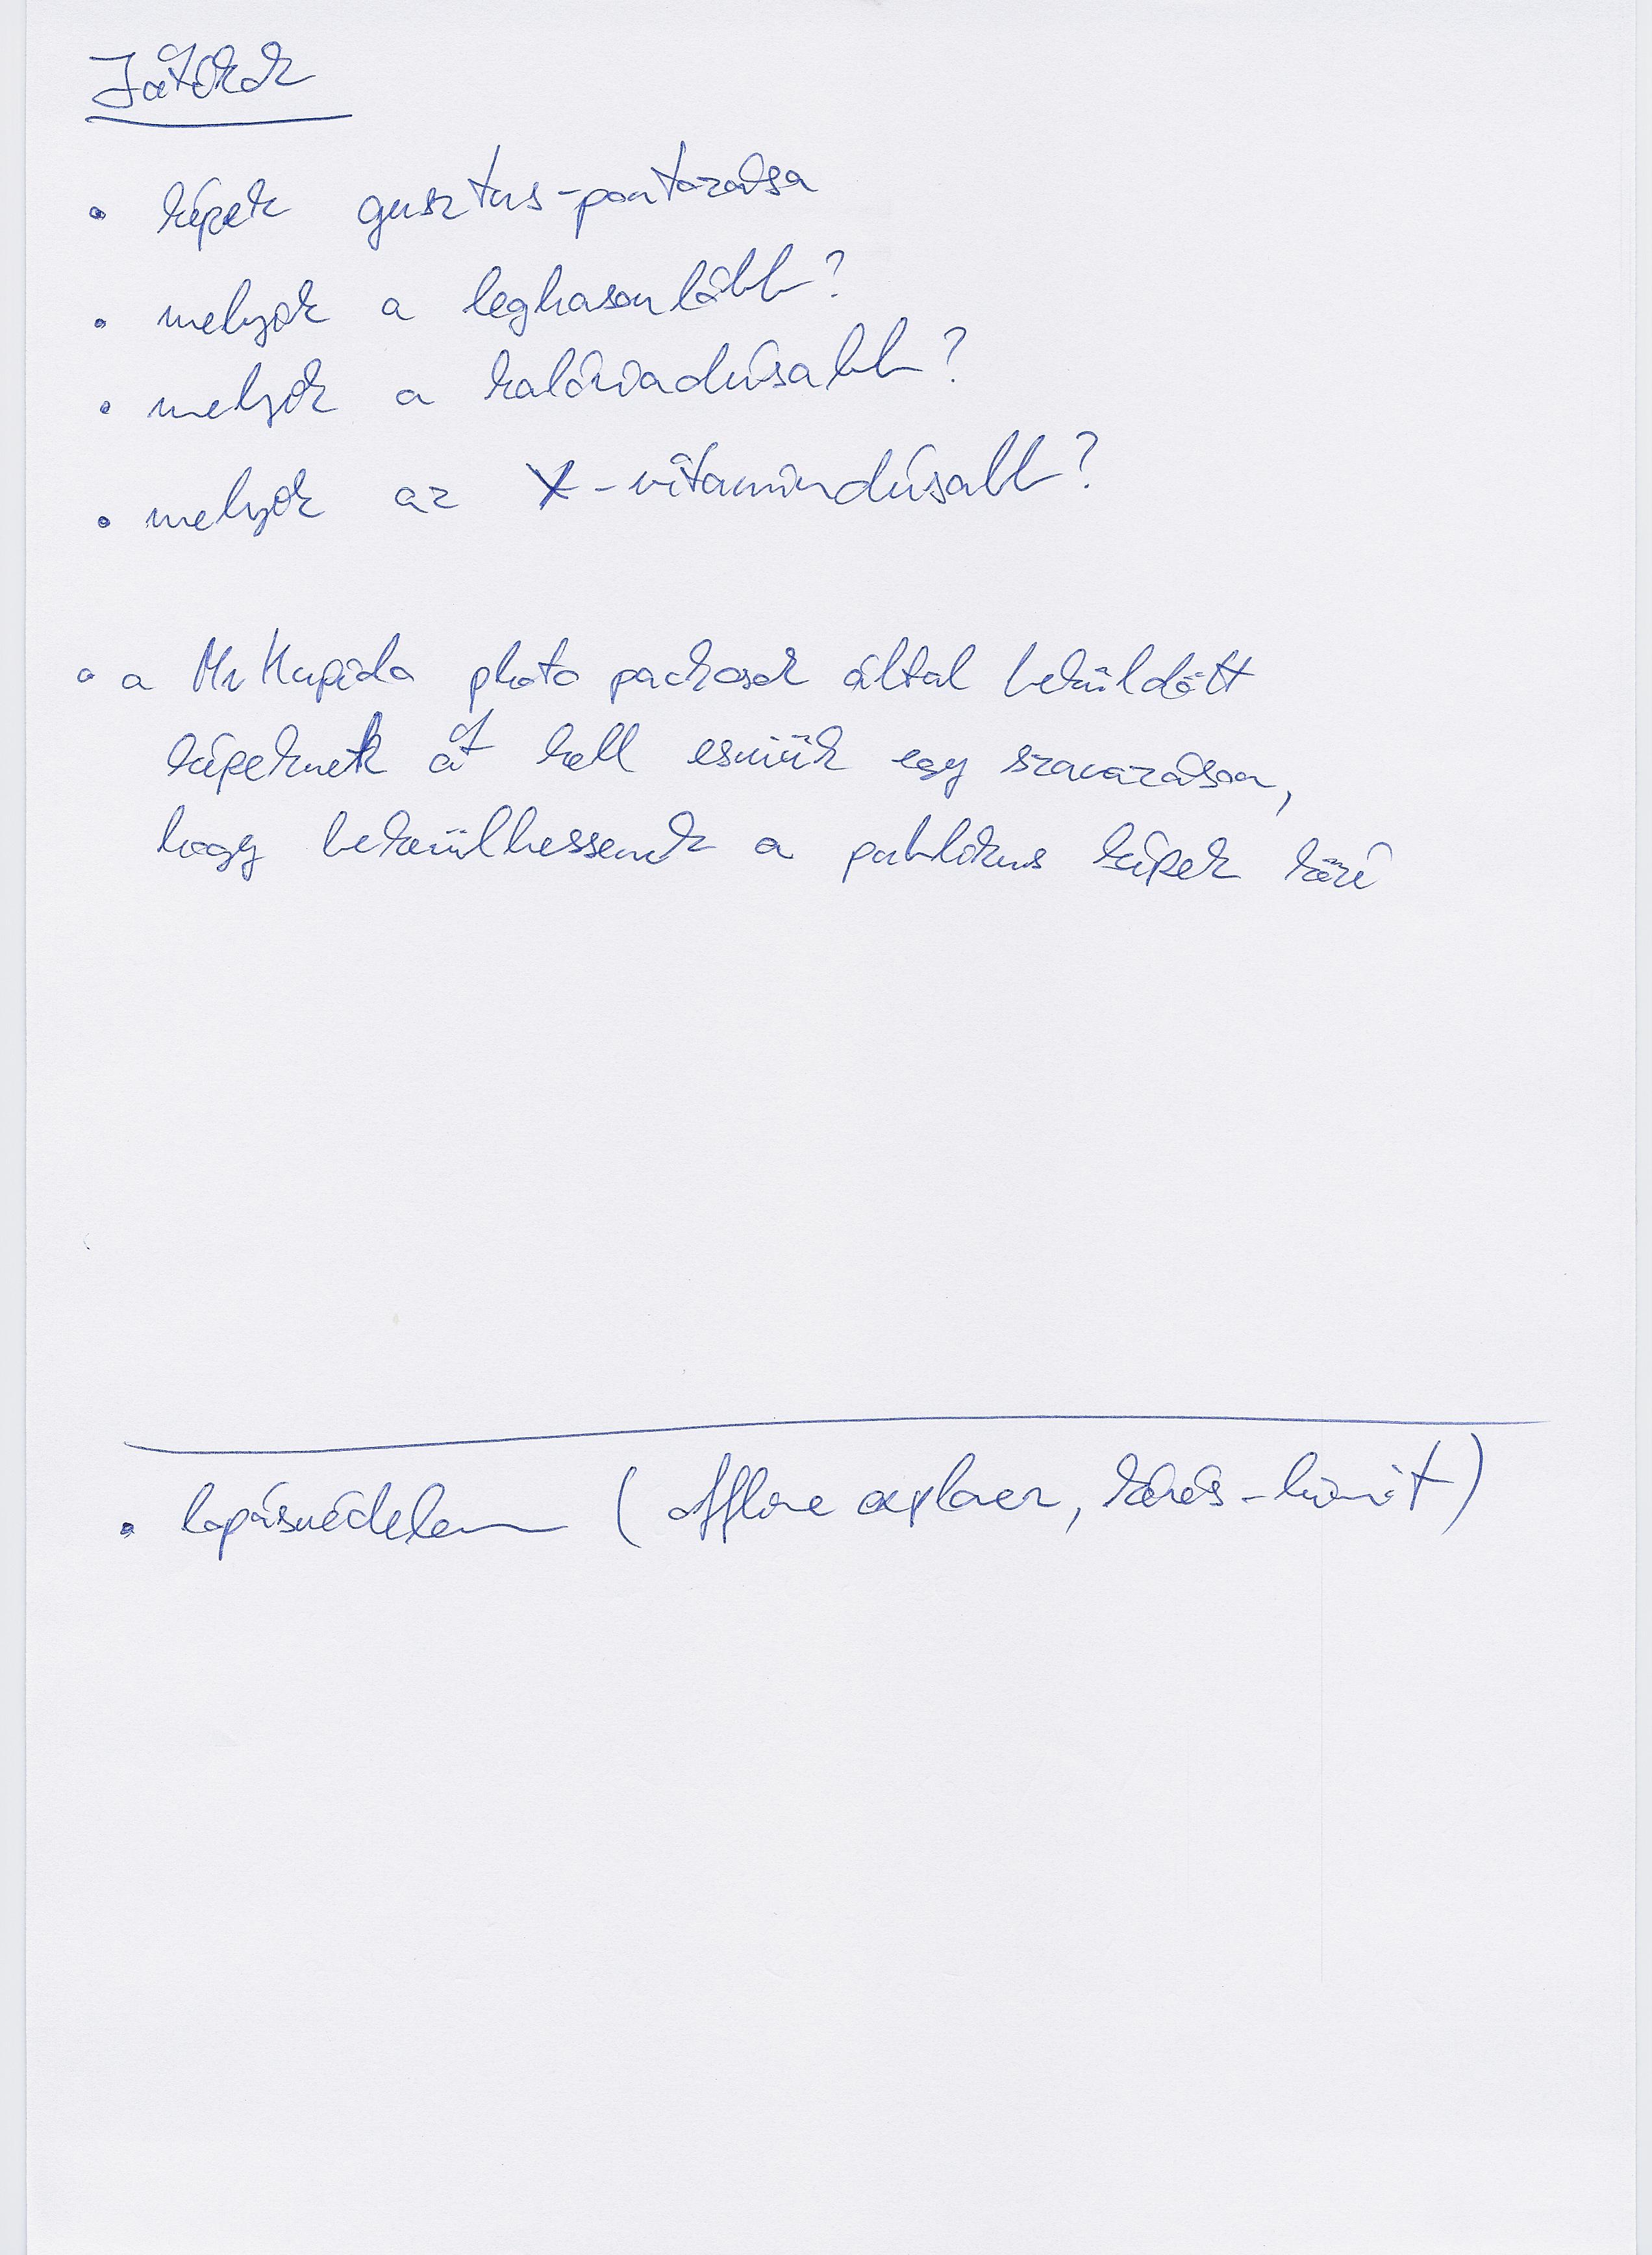 Játékok
• képek gusztus-pontozása
• melyik a leghasonlóbb?
• melyik a kalóriadúsabb?
• melyik az X-vitamindúsabb?
• a MrKupido photo packosok által beküldött
képeknek át kell esniük egy szavazáson,
hogy bekerülhessenek a publikus képek közé
• lopásvédelem (offline explorer, kérés-limit)